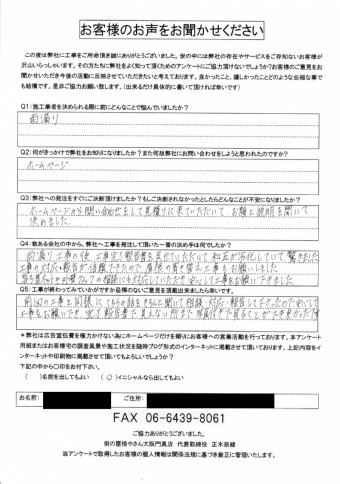 お客様のお声をお聞かせください
この度は弊社に工事をご用命頂き誠にありがとうございました。世の中には弊社の存在やサービスをご存知ないお客様が
沢山いらっしゃいます。その方たちに弊社をよく知って頂くためのアンケートにご協力頂けないでしょうか?お客様のご意見をお
聞かせいただき今後の活動に反映させていただきたいと考えております。良かったこと、嬉しかったことどのような些細な事で
も結構です。是非ご協力お願い致します。（出来るだけ具体的に書いて頂ければ幸いです）
Q1：施工業者を決められる際に前にどんなことで悩んでいましたか?
雨漏り
Q2：何がきっかけで弊社をお知りになりましたか?また何故弊社にお問い合わせをしようと思われたのですか?
ホームページ
Q3：弊社への発注をすぐにご決断頂けましたか?もしご決断されなかったとしたらどんなことが不安になりましたか?
ホームページから問い合わせをして見積りに来ていただいて お話と説明を聞いて
決めました。
Q4：数ある会社の中から、弊社へ工事を発注して頂いた一番の決め手は何でしたか?
雨漏り工事の後、工事完了報告書を見せていただいて 和瓦が劣化していて 驚きました
工事の対応・報告が信頼できたので 屋根の葺き替え工事をお願いしました
Q5：工事が終わってみていかがですか皆様のないご意見を活動出来ましたら幸いです。
前回の工事と同様に こちらの話をきちんと聞いて 相談・対応・報告して下さったので安心して
工事をお願いでき、完了報告書で見えない所まで 写真付きで見ることができ良かったです
＊弊社は広告宣伝費を極力かけない為にホームページだけを頼りにお客様への営業活動を行っております。本アンケート
用紙またはお客様宅の調査風景や施工状況を随時ブログ形式式のインターネットに掲載させて頂いております。上記内容をイ
ンターネットや印刷物に掲載させて頂いてもよろしいでしょうか?
下記の中から〇印をお付下さい。
（　）名前を出してもよい （〇）イニシャルなら出してもよい
お名前： ご住所：
FAX 06-6439-8061
ご協力ありがとうございました。
街の屋根やさん大阪門真店 代表取締役 正木奈緒
当アンケートで取得したお客様の個人情報は関係法規に基づき厳正に管理いたします。